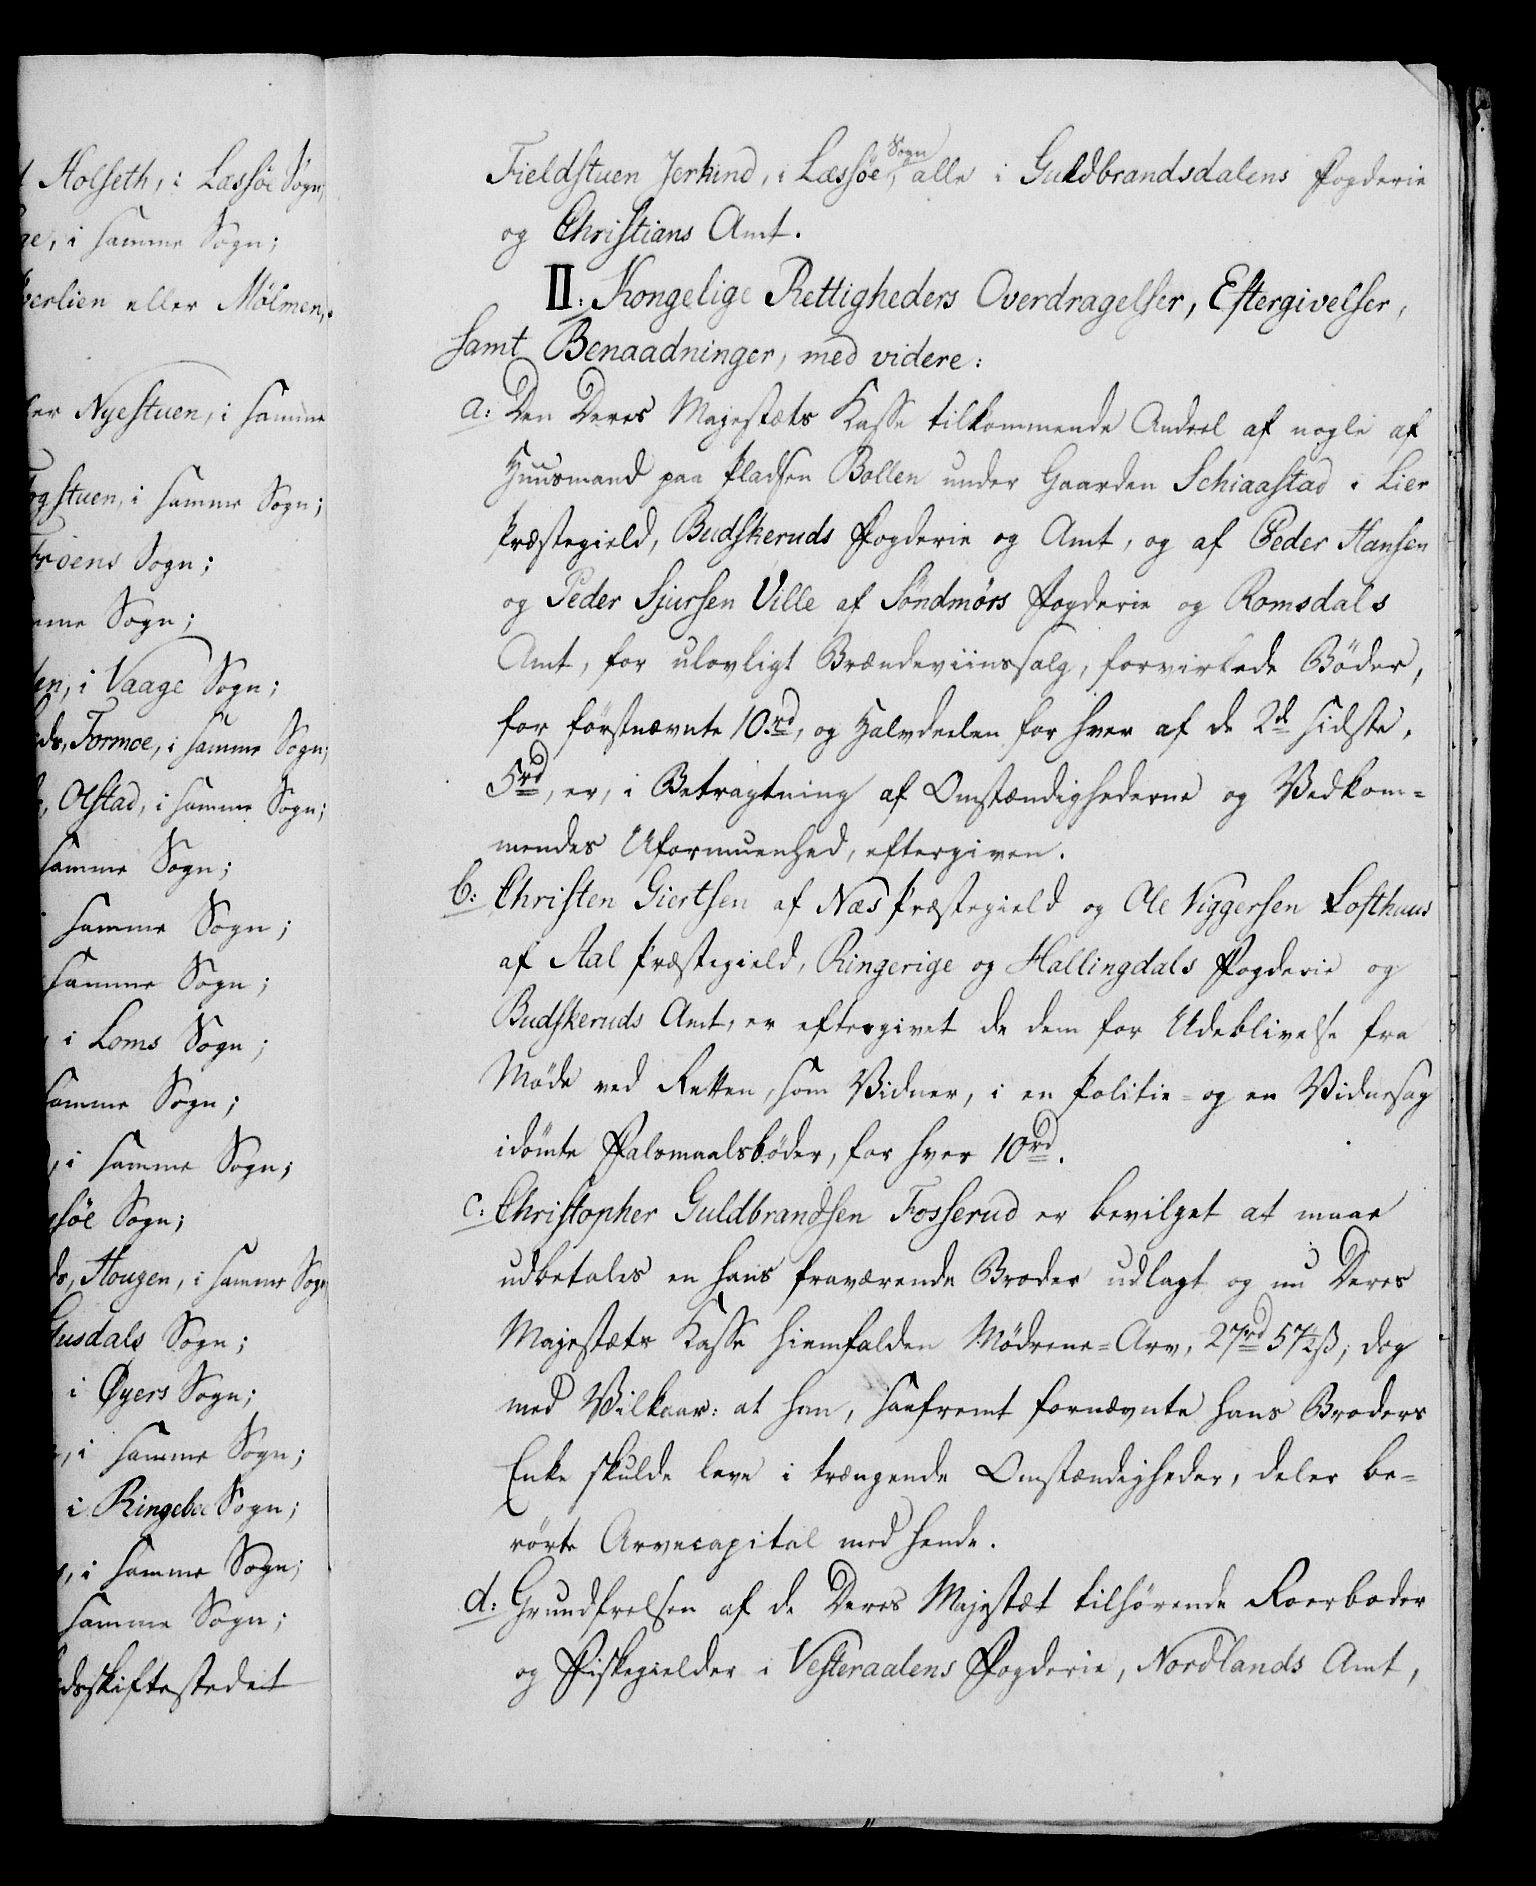 Holseth, i Læssöe Sogn;
ge, i samme Sogn;
erlien eller Mølmen,
ler Nyestuen, i samme
ogstuen, i samme Sogn;
Froens Sogn;
mme Sogn;
den, i Vaage Sogn;
ds, Formoe, i samme Sogn;
Olstad, i samme Sogn;
samme Sogn;
samme Sogn;
samme Sogn;
i Loms Sogn;
samme Sogn;
, i samme Sogn;
söe Sogn;
ds, Hougen, i samme Sogn
Gusdals Sogn;
i Øyers Sogn;
, i samme Sogn;
i Ringeboe Sogn;
, i samme Sogn;
samme Sogn;
dsskiftestedet
Fieldstuen Jerkind, i Læssöe Sogn, alle i Guldbrandsdalens Fogderie
og Christians Amt.
II: Kongelige Rettigheders Overdragelser, Eftergivelser,
samt Benaadninger, med videre:
a: Den Deres Majestæts Kasse tilkommende Andeel af nogle af
Huusmand paa Pladsen Bollen under Gaarden Schiaastad i Lier
Præstegield, Budskeruds Fogderie og Amt, og af Peder Hansen
og Peder Sjursen Ville af Söndmörs Fogderie og Romsdals
Amt, for ulovligt Brændeviinssalg, forvirkede Böder,
for förstnævnte 10rd, og Halvdeelen for hver af de 2de sidste,
5rd, er, i Betragtning af Omstændighederne og Vedkom=
mendes Uformuenhed, eftergiven.
b: Christen Giertsen af Næs Præstegield og Ole Viggersen Lofthuus
af Aal Præstegield, Ringerige og Hallingdals Fogderie og
Budskeruds Amt, er eftergivet de dem for Udeblivelse fra
Møde ved Retten, som Vidner, i en Politie= og en Vidnesag
idömte Falsmaalsböder, for hver 10rd.
c: Christopher Guldbrandsen Fosserud er bevilget at maae
udbetales en hans fraværende Broder udlagt og nu Deres
Majestæts Kasse hiemfalden Mödrene=Arv, 27rd 57½ß; dog
med Vilkaar: at han, saafremt fornævnte hans Broders
Enke skulde leve i trængende Omstændigheder, deler be=
rörte Arvecapital med hende.
d: Grundfrelsen af de Deres Majestæt tilhörende Roerboder
og Fiskegielder i Vesteraalens Fogderie, Nordlands Amt,